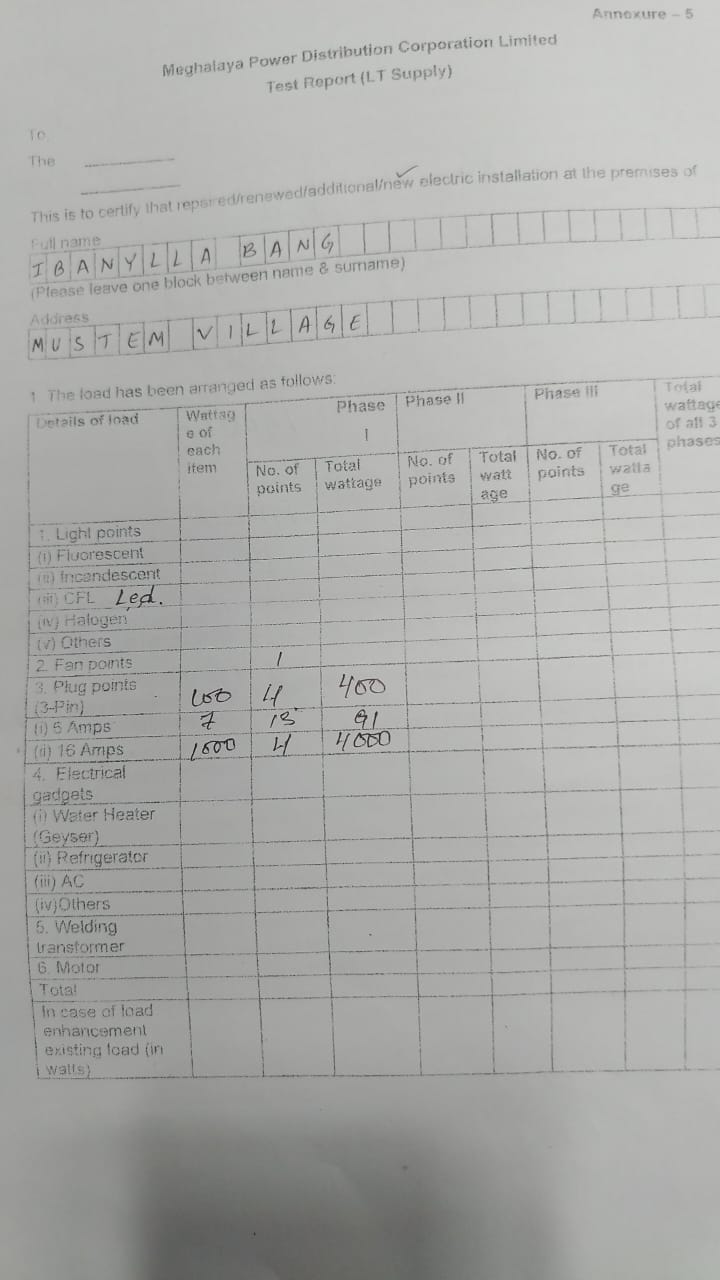 Annexure - 5
Meghalaya Power Distribution Corporation Limited
Test Report (LT Supply)
To,
The
This is to certify that repaired/renewed/additional/new electric installation at the premises of
Full name
IBANYLLA BANG
(Please leave one block between name & surname)
Address
MUSTEM VILLAGE
1. The load has been arranged as follows:
Details of load
Wattag
e of
each
item
Phase
I
Phase II
Phase III
Total
wattage
of all 3
phases
No. of
points
Total
wattage
No. of
points
Total
watt
age
No. of
points
Total
watta
ge
1. Light points
(i) Fluorescent
(ii) Incandescent
(iii) CFL Led.
(iv) Halogen
(v) Others
2. Fan points 1
3. Plug points
(3-Pin) 100 4 400
(i) 5 Amps 7 13 91
(ii) 16 Amps 1000 4 4000
4. Electrical
gadgets
(i) Water Heater
(Geyser)
(ii) Refrigerator
(iii) AC
(iv)Others
5. Welding
transformer
6. Motor
Total
In case of load
enhancement
existing load (in
watts)